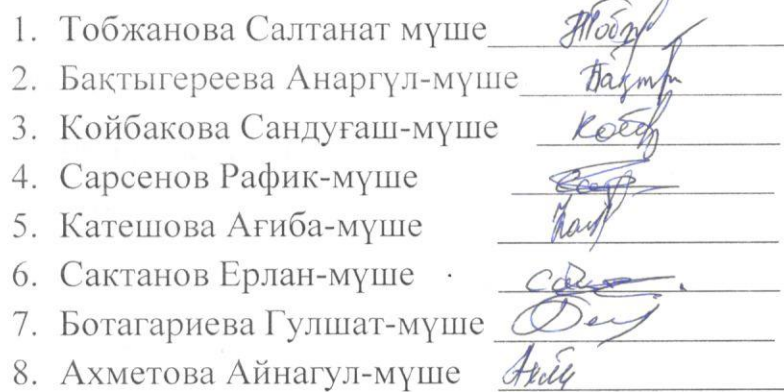 1. Тобжанова Салтанат мүше
2. Бақтыгереева Анаргүл-мүше
3. Койбакова Сандуғаш-мүше
4. Сарсенов Рафик-мүше
5. Катешова Ағиба-мүше
6. Сактанов Ерлан-мүше
7. Ботагариева Гулшат-мүше
8. Ахметова Айнагул-мүше